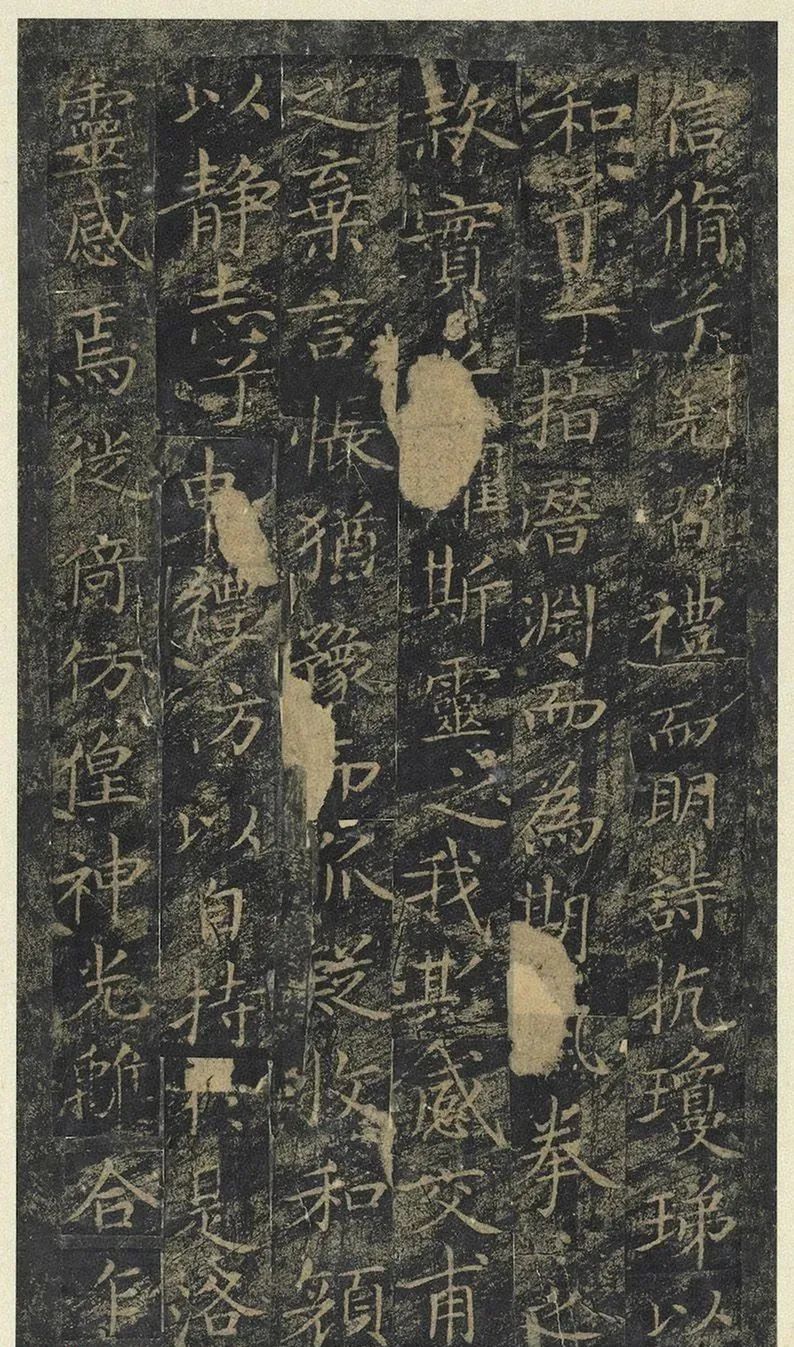 信脩兮羌習禮而明詩抗瓊珶以
和予兮指潛淵而為期拳〻之
款實懼斯靈之我欺感交甫
之棄言悵猶豫而狐疑收和顏
以静志兮申禮防以自持於是洛
靈感焉徙倚仿偟神光離合乍